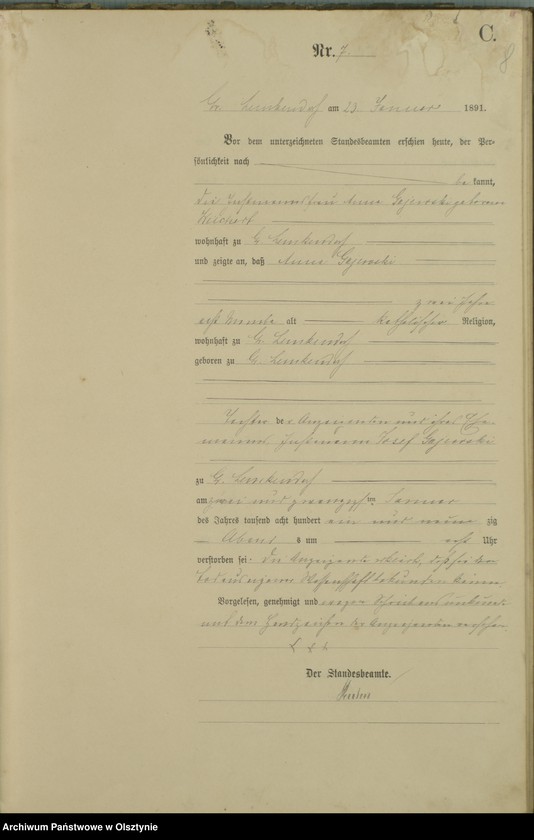 C.
8
Nr. 7
Gr. Lemkendorf am 23. Januar 1891.
Vor dem unterzeichneten Standesbeamten erschien heute, der Per-
sönlichkeit nach
be kannt,
die Instmannsfrau Anna Gejewski geborene
wohnhaft zu Gr. Lemkendorf
und zeigte an, daß Anna Gejewski
zwei Jahre
acht Monate alt katholischer Religion,
wohnhaft zu Gr. Lemkendorf
geboren zu Gr. Lemkendorf
Tochter der Anzeigenden und ihres Ehe-
mannes, Instmann Josef Gejewski
zu Gr. Lemkendorf
am zwei und zwanzigsten Januar
des Jahres tausend acht hundert ein und neun zig
Abends um acht Uhr
verstorben sei. Die Anzeigende erklärt, daß sie den
Tod aus eigener Wissenschaft bekunden könne.
Vorgelesen, genehmigt und wegen Schreibensunkunde
mit dem Handzeichen der Anzeigenden versehen.
† † †
Der Standesbeamte.
Archiwum Państwowe w Olsztynie